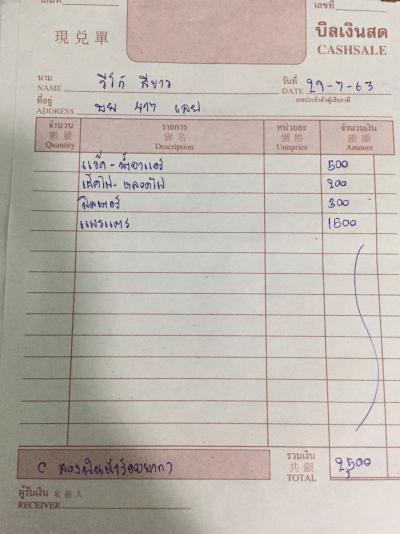 เล่มที่
เลขที่
現兌單
บิลเงินสด
CASHSALE
นาม NAME วีโก้ สีขาว วันที่ DATE 29-7-63
เลขประจำตัวผู้เสียภาษี
ที่อยู่ ADDRESS 417 เลย
จำนวน 數量 Quantity รายการ 貨名 Description หน่วยละ 價格 Unitprice จำนวนเงิน 銀額 Amount
แอร์ 500
เช็คไฟ-หลอดไฟ 200
ฟิลเตอร์ 300
แผง 1500
C สองพันห้าร้อยบาท) รวมเงิน 共銀 TOTAL 2,500
ผู้รับเงิน 收銀人 RECEIVER